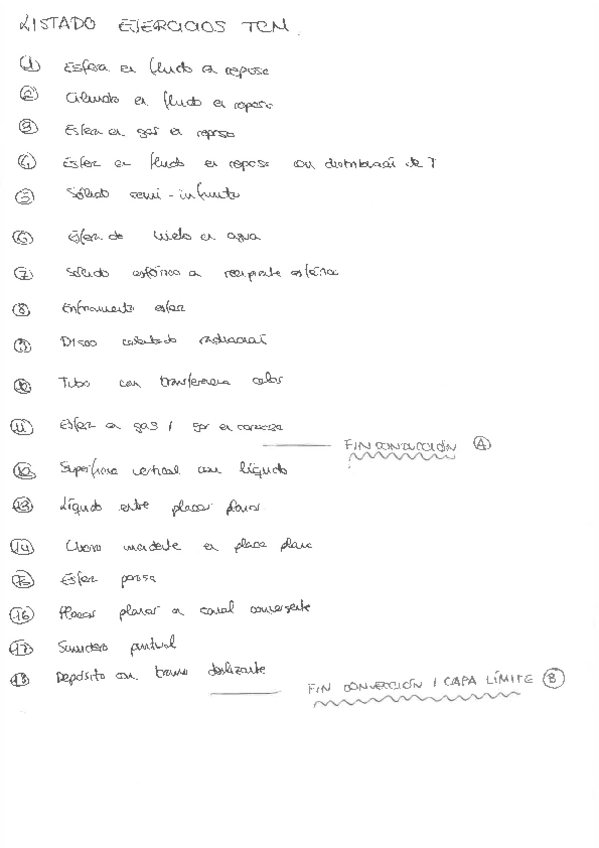 LISTADO EJERCICIOS TCM.
① Esfera en fluido en reposo
② Cilindro en fluido en reposo
③ Esfera en gas en reposo
④ Esfera en fluido en reposo con distribución de T
⑤ Sólido semi-infinito
⑥ Esfera de hielo en agua
⑦ Sólido esférico en recipiente esférico
⑧ Enfriamiento esfera
⑨ Disco calentado radiación
⑩ Tubo con transferencia calor
⑪ Esfera en gas / gas en
FIN CONDUCCIÓN Ⓐ
⑫ Superficie vertical con líquido
⑬ Líquido entre placas planas
⑭ Chorro incidente en placa plana
⑮ Esfera porosa
⑯ Placas planas en canal convergente
⑰ Sumidero puntual
⑱ Depósito con tramo deslizante
FIN CONVECCIÓN / CAPA LÍMITE Ⓑ